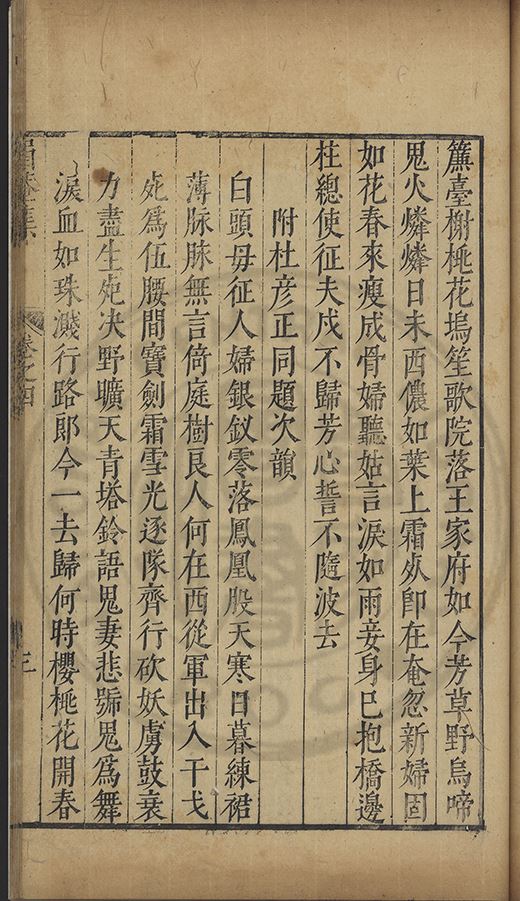 簾臺榭桃花塢笙歌院落王家府如今芳草野烏啼
鬼火燐燐日未西儂如葉上霜勢即在奄忽新婦固
如花春來瘦成骨婦聽姑言淚如雨妾身已抱橋邊
柱總使征夫戍不歸芳心誓不隨波去
附杜彥正同題次韻
白頭母征人婦銀釵零落鳳凰股天寒日暮練裙
薄脉脉無言倚庭樹良人何在西從軍出入干戈
死爲伍腰間寶劍霜雪光逐隊齊行砍妖虜鼓衰
力盡生死决野曠天青塔鈴語鬼妻悲號鬼爲舞
淚血如珠濺行路郎今一去歸何時櫻桃花開春
眉菴集
卷之四
三